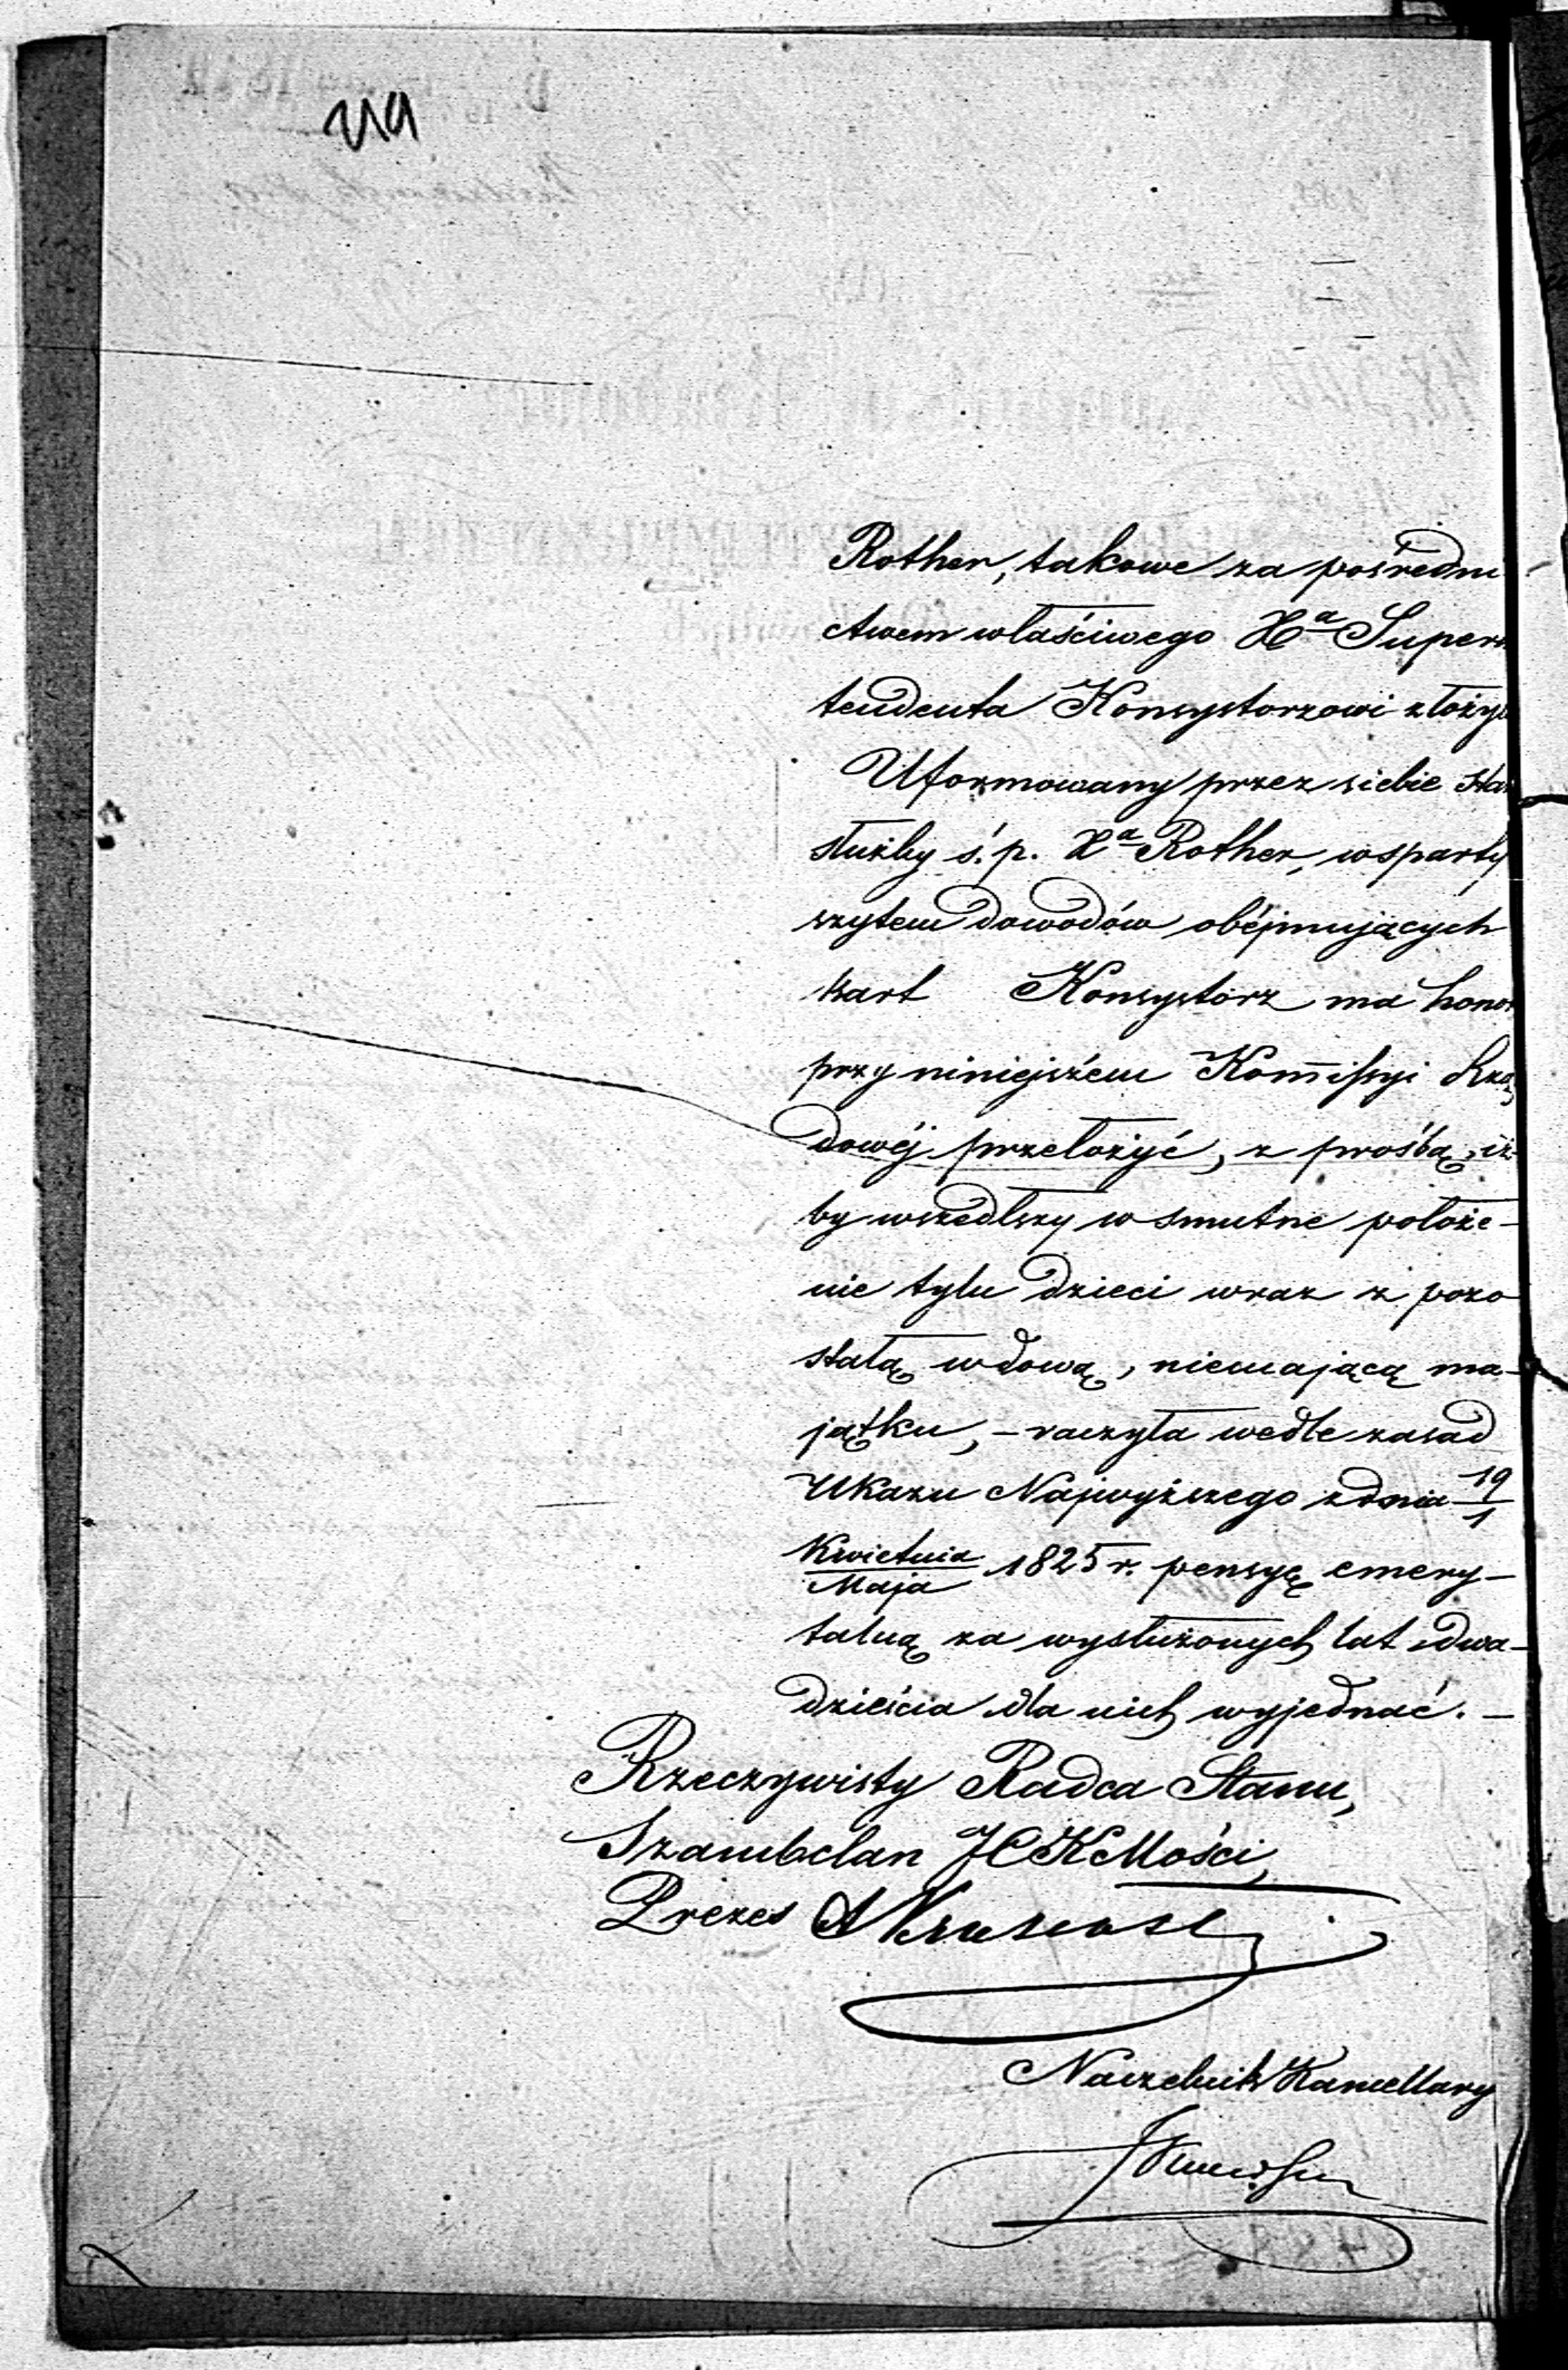 Rother, takowe za pośredni
ctwem właściwego Xa Super
tendenta Konsystorzowi złoży
Uformowany przez siebie sta
służby ś. p. Xa Rother, wsparty
szytem dowodów obéjmujących
kart Konsystorz ma hono
przy niniejszém Kommissyi Rzą
dowéj przełożyć, z prośbą, iż
by wszedłszy w smutne położe-
nie tylu dzieci wraz z pozo
stałą wdową, niemającą ma-
jątku, – raczyła wedle zasad
Ukazu Najwyższego z dnia 19/1
Kwietnia/Maja 1825 r. pensyę emery-
talną za wysłużonych lat dwa-
dzieścia dla nich wyjednać. –
Rzeczywisty Radca Stanu,
Szambelan JCKMości,
Prezes
Naczelnik Kancellary